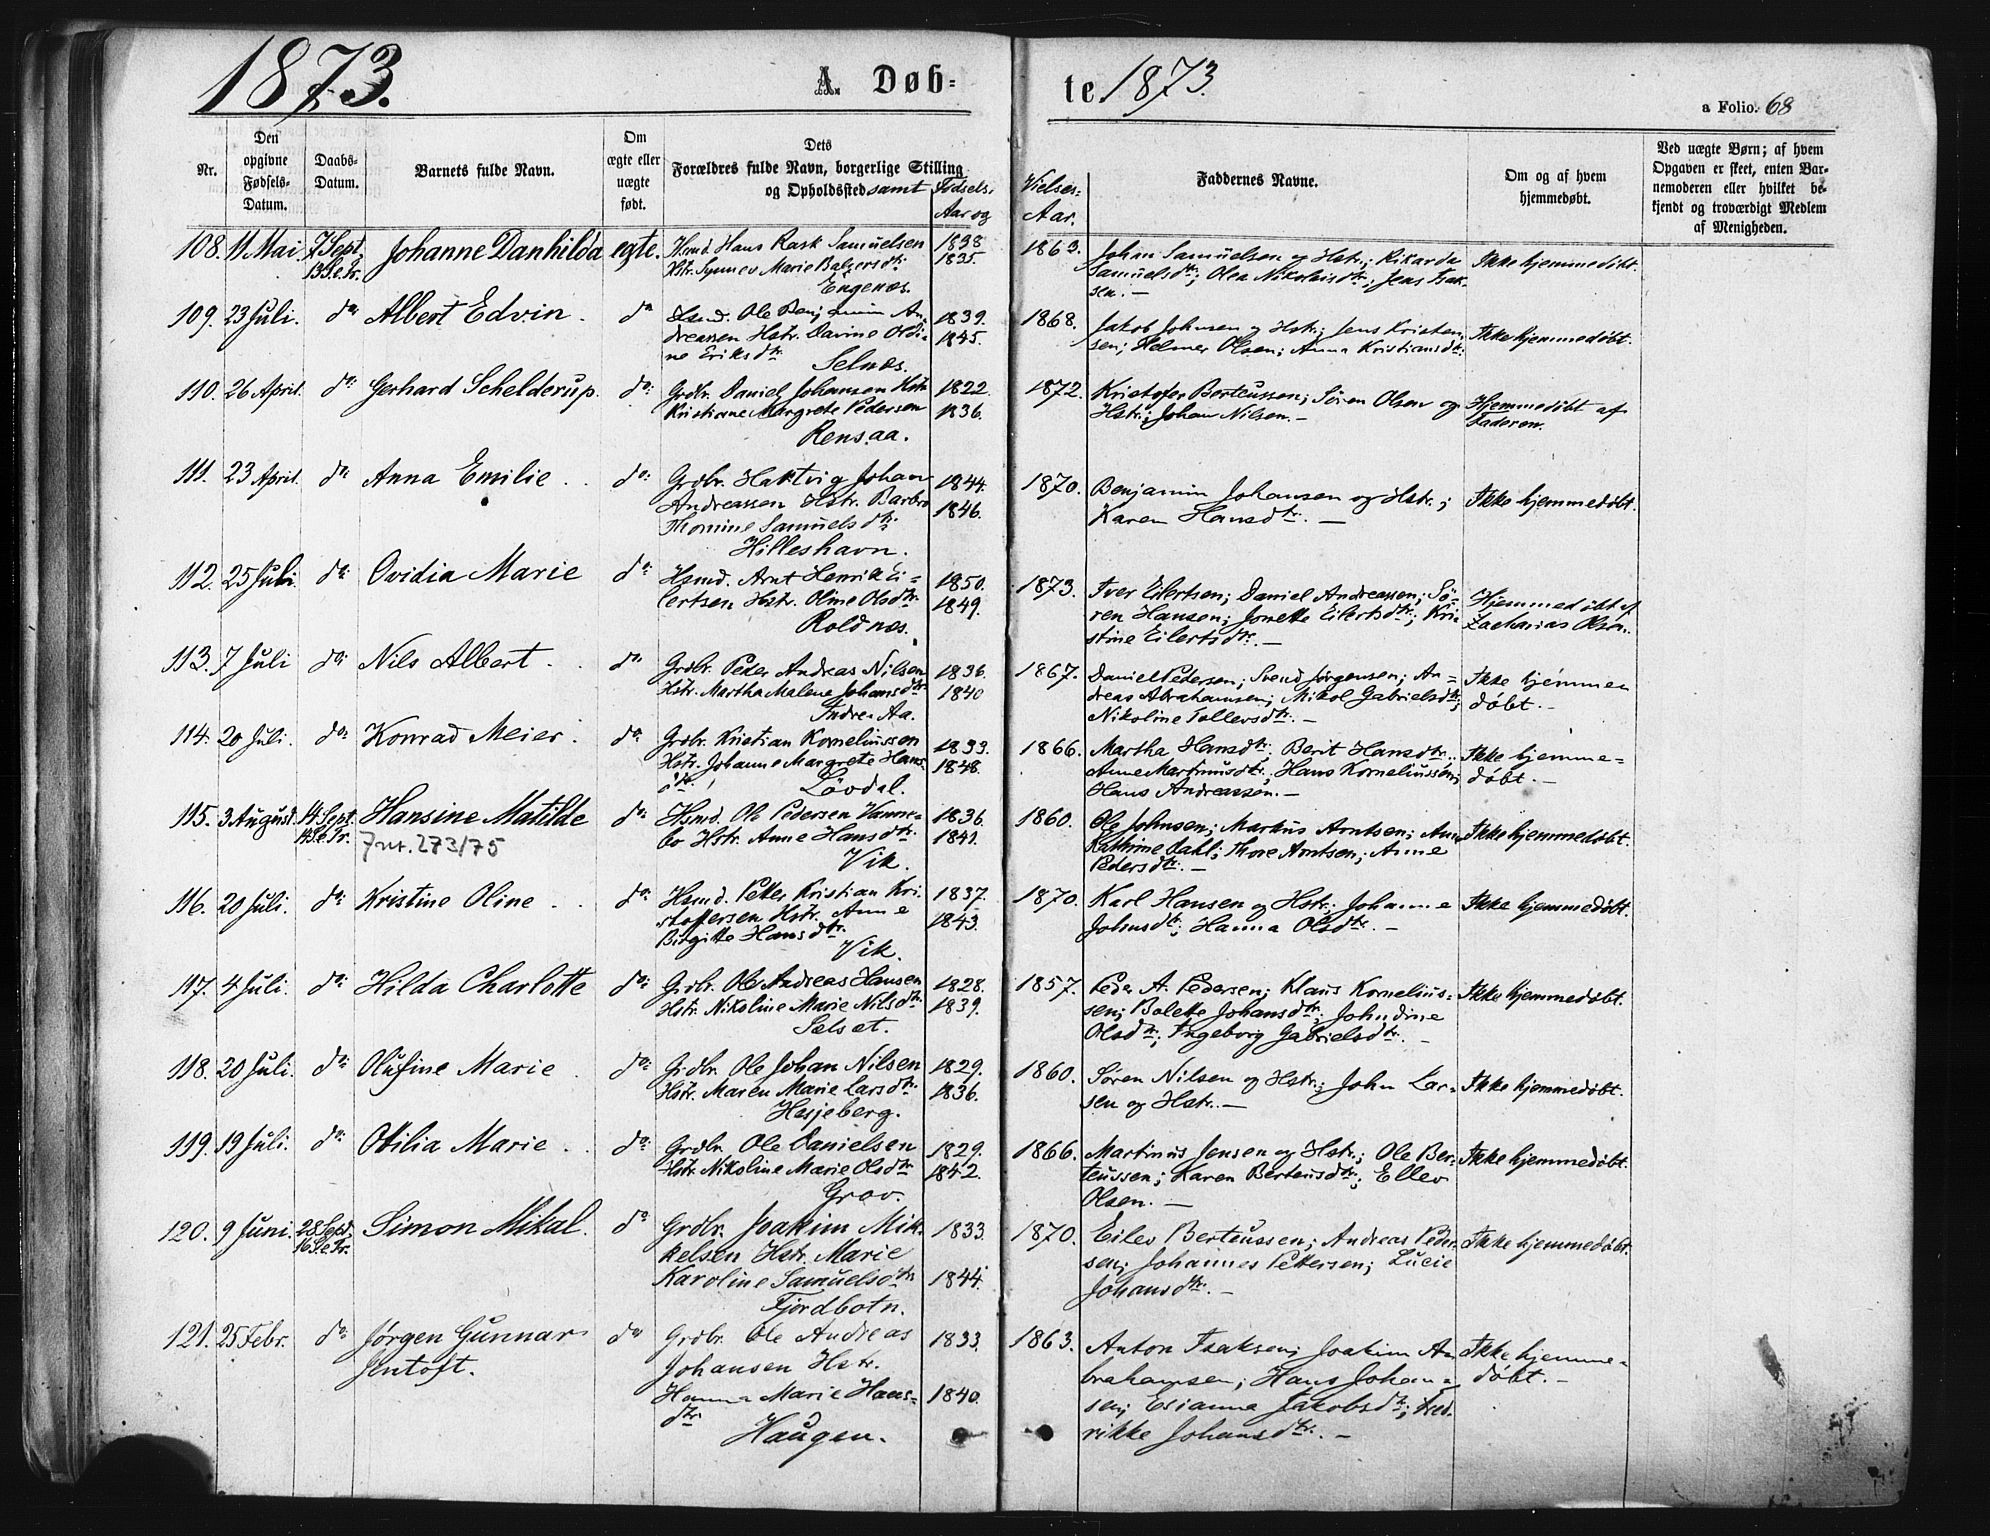 1873.
A. Døb=
te 1873.
a Folio. 68
Nr.
Den opgivne Fødsels-Datum.
Daabs-Datum.
Barnets fulde Navn.
Om ægte eller uægte født.
Dets Forældres fulde Navn, borgerlige Stilling og Opholdssted samt Fødsels-Aar og
Vielses-Aar.
Faddernes Navne.
Om og af hvem hjemmedøbt.
Ved uægte Børn; af hvem Opgaven er skeet, enten Barnemoderen eller hvilket bekjendt og troværdigt Medlem af Menigheden.
108. 11 Mai 7 Sept. 13 S.e.Tr. Johanne Danhilda egte.
Hsmd. Hans Rask Samuelsen 1838
Hstr. Synnev Marie Balzersdtr. 1835.
Engenæs.
1863. Johan Samuelsen og Hstr.; Rikarda
Samuelsdtr.; Olea Nikolaisdtr.; Jens Isak-
sen. —
Ikke hjemmedøbt.
109. 23 Juli. do: Albert Edvin. do
Hsmd. Ole Benjamin An- 1839.
dreassen Hstr. Davine Oldi- 1845.
ne Eriksdtr.
Selnæs.
1868. Jakob Johnsen og Hstr.; Jens Kristen-
sen; Helmer Olsen; Anna Kristiansdtr.
Ikke hjemmedøbt.
110. 26 April. do: Gerhard Schelderup. do:
Grdbr. Daniel Johansen Hstr. 1822.
Kristiane Margrete Pedersen 1836.
Rensaa.
1872. Kristofer Berteussen; Søren Olsen og
Hstr.; Johan Nilsen. —
Hjemmedøbt af
Faderen.
111. 23 April. do: Anna Emilie. do:
Grdbr. Hartvig Johan 1844.
Andreassen Hstr. Barbro 1846.
Thomine Samuelsdtr.
Hilleshavn.
1870. Benjamin Johansen og Hstr.;
Karen Hansdtr. —
Ikke hjemmedøbt.
112. 25 Juli. do: Ovidia Marie do:
Hsmd. Arnt Henrik Ei- 1850.
lertsen Hstr. Oline Olsdtr. 1849.
Roldnæs.
1873. Iver Eilertsen; Daniel Andreassen; Sø-
ren Hansen; Jonette Eilertsdtr.; Kri-
stine Eilertsdtr. —
Hjemmedøbt af
Zacharias Olsen.
113. 7 Juli do: Nils Albert. do:
Grdbr. Peder Andreas Nilsen 1836.
Hstr. Martha Malene Johansdtr. 1840
Indre Aa.
1867. Daniel Pedersen; Svend Jørgensen; An-
dreas Abrahamsen; Mikol Gabrielsdtr.;
Nikoline Tollevsdtr. —
Ikke hjemme
døbt. —
114. 20 Juli. do: Konrad Meier. do:
Grdbr. Kristian Korneliussen 1833.
Hstr. Johanne Margrete Hans- 1848.
dtr. Løvdal.
1866. Martha Hansdtr.; Berit Hansdtr.;
Anne Martinusdtr.; Hans Korneliussen;
Hans Andreassen. —
Ikke hjemme-
døbt. —
115. 3 August. 14 Sept. 14 S.e.Tr. Hansine Matilde do:
Jnr. 273/75
Hsmd. Ole Pedersen Vanne- 1836.
bo Hstr. Anne Hansdtr. 1841.
Vik.
1860. Ole Johnsen; Markus Arntsen; Anne
Kathrine Dahl; Thore Arntsen; Anne
Pedersdtr. —
Ikke hjemmedøbt.
116. 20 Juli. do: Kristine Oline. do:
Hsmd. Petter Kristian Kri- 1837.
stoffersen Hstr. Anne 1843.
Birgitte Hansdtr.
Vik.
1870. Karl Hansen og Hstr.; Johanne
Johnsdtr.; Hanna Olsdtr. —
Ikke hjemmedøbt.
117. 4 Juli. do: Hilda Charlotte do:
Grdbr. Ole Andreas Hansen 1828.
Hstr. Nikoline Marie Nilsdtr. 1839.
Sælset.
1857. Peder A. Pedersen; Klaus Kornelius-
sen; Bolette Johansdtr.; Johndine
Olsdtr.; Ingeborg Gabrielsdtr. —
Ikke hjemmedøbt.
118. 20 Juli. do: Olufine Marie do:
Grdbr. Ole Johan Nilsen 1829.
Hstr. Maren Marie Larsdtr. 1836.
Hesjeberg.
1860. Søren Nilsen og Hstr.; John Lar-
sen og Hstr. —
Ikke hjemmedøbt.
119. 19 Juli. do: Otilia Marie. do:
Grdbr. Ole Danielsen 1829.
Hstr. Nikoline Marie Olsdtr. 1842.
Grov.
1866. Martinus Jensen og Hstr.; Ole Ber-
teussen; Karen Berteusdtr.; Ellev
Olsen. —
Ikke hjemmedøbt.
120. 9 Juni. 28 Sept. 16 S.e.Tr. Simon Mikal. do
Grdbr. Joakim Mik- 1833.
kelsen Hstr. Marie
Karoline Samuelsdtr. 1844.
Fjordbotn.
1870. Eilev Berteussen; Andreas Peder-
sen; Johannes Pettersen; Lucie
Johansdtr. —
Ikke hjemmedøbt.
121. 25 Febr. do: Jørgen Gunnar do
Jentoft.
Grdbr. Ole Andreas 1833.
Johansen Hstr.
Hanna Marie Hans- 1840.
dtr.
Haugen.
1863. Anton Isaksen; Joakim A-
brahamsen; Hans Johan-
sen; Esianna Jakobsdtr.; Fred-
rikke Johansdtr. —
Ikke hjemme-
døbt. —